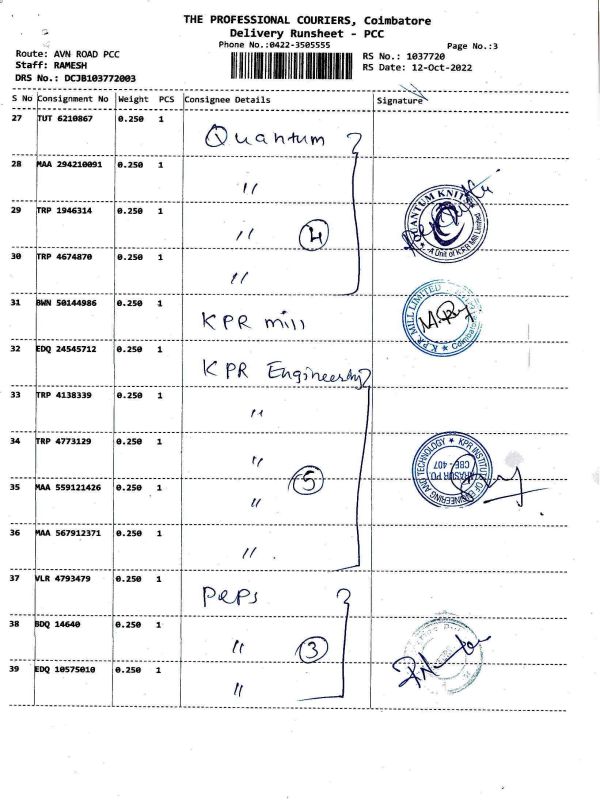 THE PROFESSIONAL COURIERS, Coimbatore
Delivery Runsheet - PCC
Phone No.:0422-3505555
Page No.:3
Route: AVN ROAD PCC
Staff: RAMESH
DRS No.: DCJB103772003
RS No.: 1037720
RS Date: 12-Oct-2022
S No Consignment No Weight PCS Consignee Details Signature
27 TUT 6210867 0.250 1 Quantum
28 MAA 294210091 0.250 1 "
29 TRP 1946314 0.250 1 " 4
30 TRP 4674870 0.250 1 "
QUANTUM KNITS
A Unit of KPR Mill Limited
31 BWN 50144986 0.250 1 KPR mill
K.P.R MILL LIMITED
Coimbatore
32 EDQ 24545712 0.250 1 KPR Engineering
33 TRP 4138339 0.250 1 "
34 TRP 4773129 0.250 1 "
35 MAA 559121426 0.250 1 " 5
36 MAA 567912371 0.250 1 "
KPR INSTITUTE OF ENGINEERING AND TECHNOLOGY
CBE - 407
37 VLR 4793479 0.250 1 Peps
38 BDQ 14640 0.250 1 " 3
39 EDQ 10575010 0.250 1 "